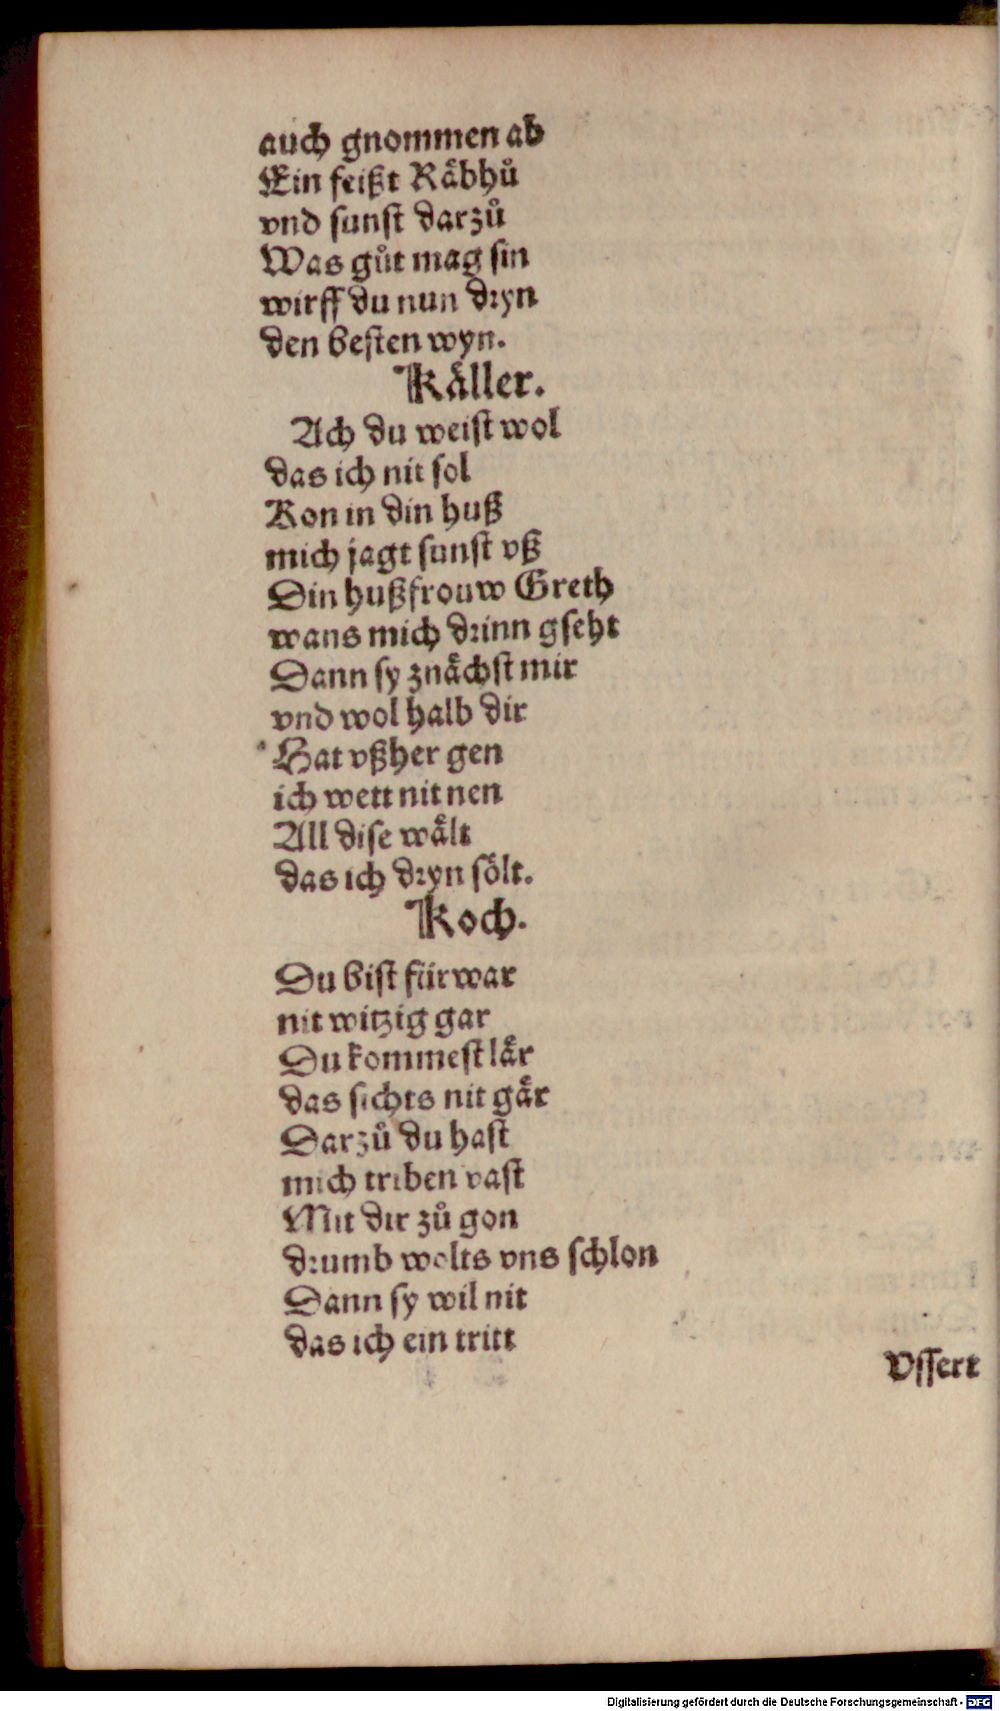 auch gnommen ab
Ein feißt Räbhů
vnd sunst darzů
Was gůt mag sin
wirff du nun dryn
den besten wyn.
Käller.
Ach du weist wol
das ich nit sol
Kon in din huß
mich jagt sunst vß
Din hußfrouw Greth
wans mich drinn gseht
Dann sy znächst mir
vnd wol halb dir
Hat vßher gen
ich wett nit nen
All dise wält
das ich dryn sölt.
Koch.
Du bist fürwar
nit witzig gar
Du kommest lär
das sichts nit gär
Darzů du hast
mich triben vast
Mit dir zů gon
drumb wolts vns schlon
Dann sy wil nit
das ich ein tritt
Vssert
Digitalisierung gefördert durch die Deutsche Forschungsgemeinschaft - DFG